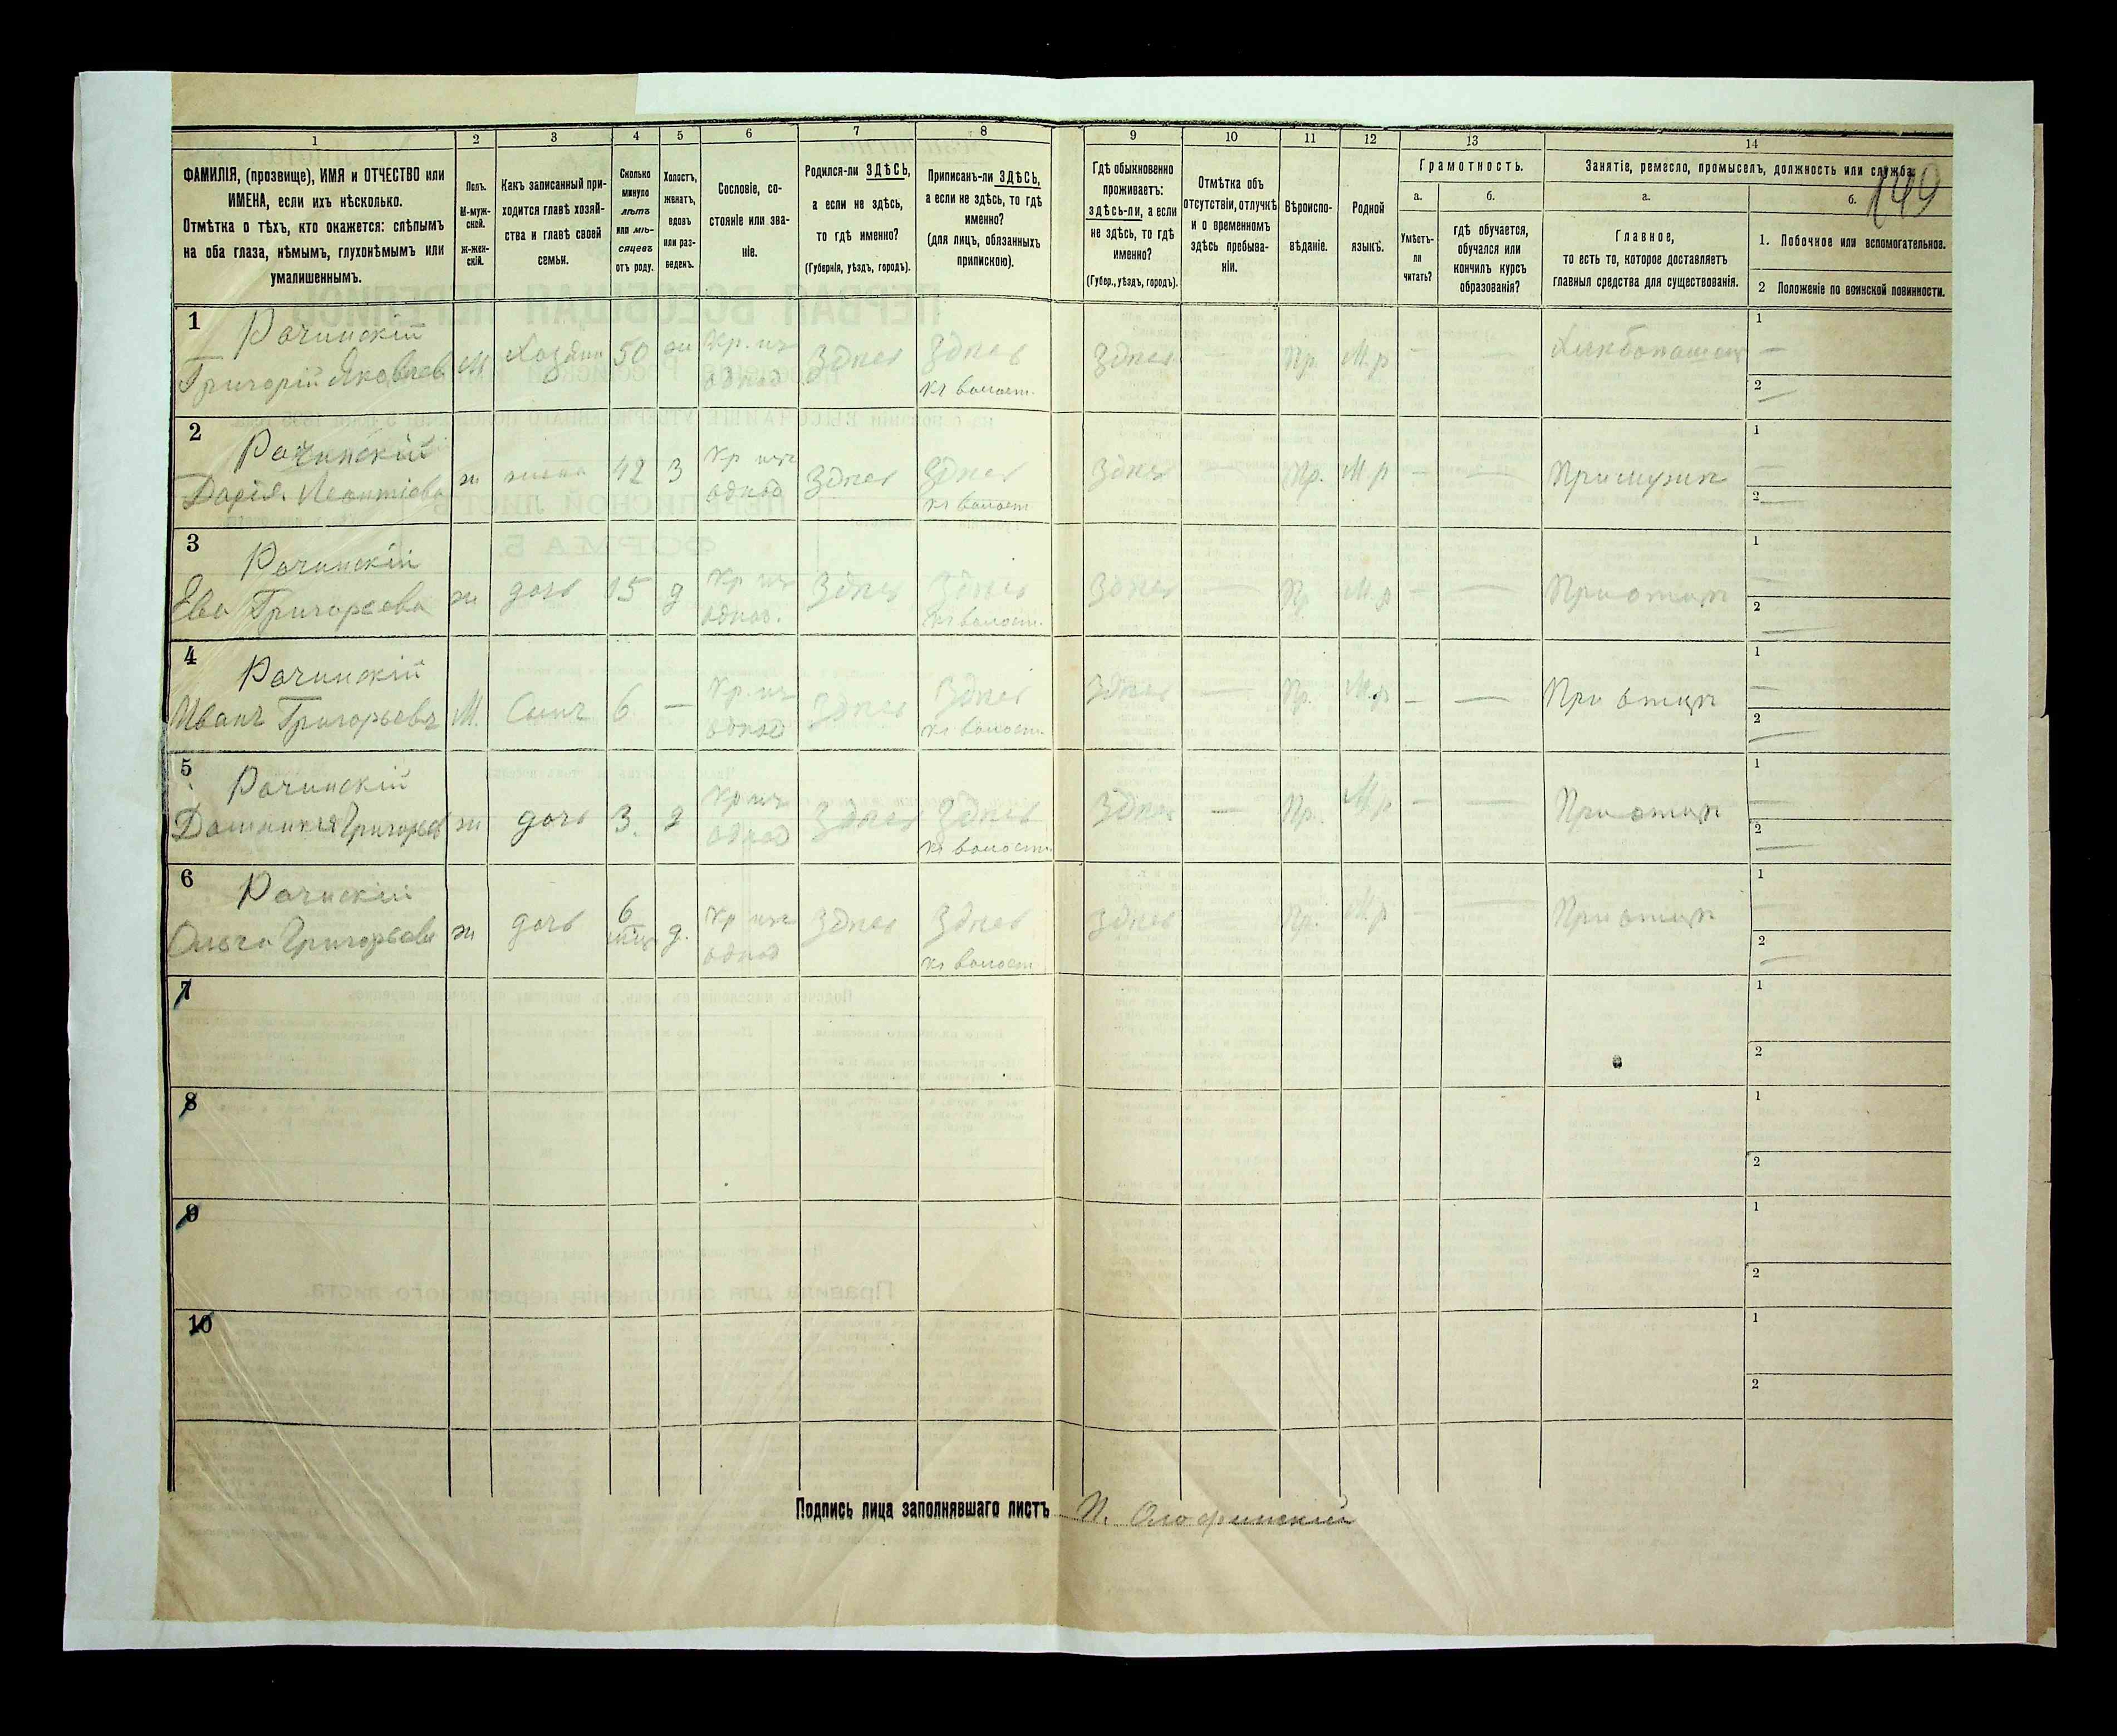 1 2 3 4 5 6 7 8 9 10 11 12 13 14
ФАМИЛІЯ, (прозвище), ИМЯ и ОТЧЕСТВО или
ИМЕНА, если ихъ нѣсколько.
Отмѣтка о тѣхъ, кто окажется: слѣпымъ
на оба глаза, нѣмымъ, глухонѣмымъ или
умалишеннымъ.
Полъ.
М-муж-
ской.
Ж-жен-
скій.
Какъ записанный при-
ходится главѣ хозяй-
ства и главѣ своей
семьи.
Сколько
минуло
лѣтъ
или мѣ-
сяцевъ
отъ роду.
Холостъ,
женатъ,
вдовъ
или раз-
веденъ.
Сословіе, со-
стояніе или зва-
ніе.
Родился-ли ЗДѢСЬ,
а если не здѣсь,
то гдѣ именно?
(Губернія, уѣздъ, городъ).
Приписанъ-ли ЗДѢСЬ,
а если не здѣсь, то гдѣ
именно?
(для лицъ, обязанныхъ
припискою).
Гдѣ обыкновенно
проживаетъ:
здѣсь-ли, а если
не здѣсь, то гдѣ
именно?
(Губер., уѣздъ, городъ).
Отмѣтка объ
отсутствіи, отлучкѣ
и о временномъ
здѣсь пребыва-
ніи.
Вѣроиспо-
вѣданіе.
Родной
языкъ.
Грамотность.
а.
Умѣетъ-
ли
читать?
б.
гдѣ обучается,
обучался или
кончилъ курсъ
образованія?
Занятіе, ремесло, промыселъ, должность или служба.
149
а.
Главное,
то есть то, которое доставляетъ
главныя средства для существованія.
б.
1. Побочное или вспомогательное.
2 Положеніе по воинской повинности.
1 Рачинскій
Григорій Яковлев М Хозяинъ 50 ж Кр. изъ однод Здѣсь Здѣсь къ волост. Здѣсь Пр. М.р - — 1 —
2 —
2 Рачинскій
Дарія Леонтіева ж жена 42 З Кр изъ однод Здѣсь Здѣсь къ волост Здѣсь — Пр. М.р - — При мужѣ 1 —
2 —
3 Рачинскій
Ева Григорьева ж дочь 15 д Кр изъ однод. Здѣсь Здѣсь къ волост. Здѣсь — Пр. М.р - — При отцѣ 1 —
2 —
4 Рачинскій
Иванъ Григорьевъ М. Сынъ 6 — Кр. изъ однод Здѣсь Здѣсь къ волост. Здѣсь — Пр. М.р - — При отцѣ 1 —
2 —
5 Рачинскій
Доминикія Григорьев ж дочь 3. д Кр изъ однод Здѣсь Здѣсь къ волост. Здѣсь — Пр. М.р - — При отцѣ 1 —
2 —
6 Рачинскій
Ольга Григорьева ж дочь 6 мѣсц д. Кр изъ однод Здѣсь Здѣсь къ волост. Здѣсь Пр. М.р — При отцѣ 1 —
2 —
7 1
2
8 1
2
9 1
2
10 1
2
Подпись лица заполнявшаго листъ П.